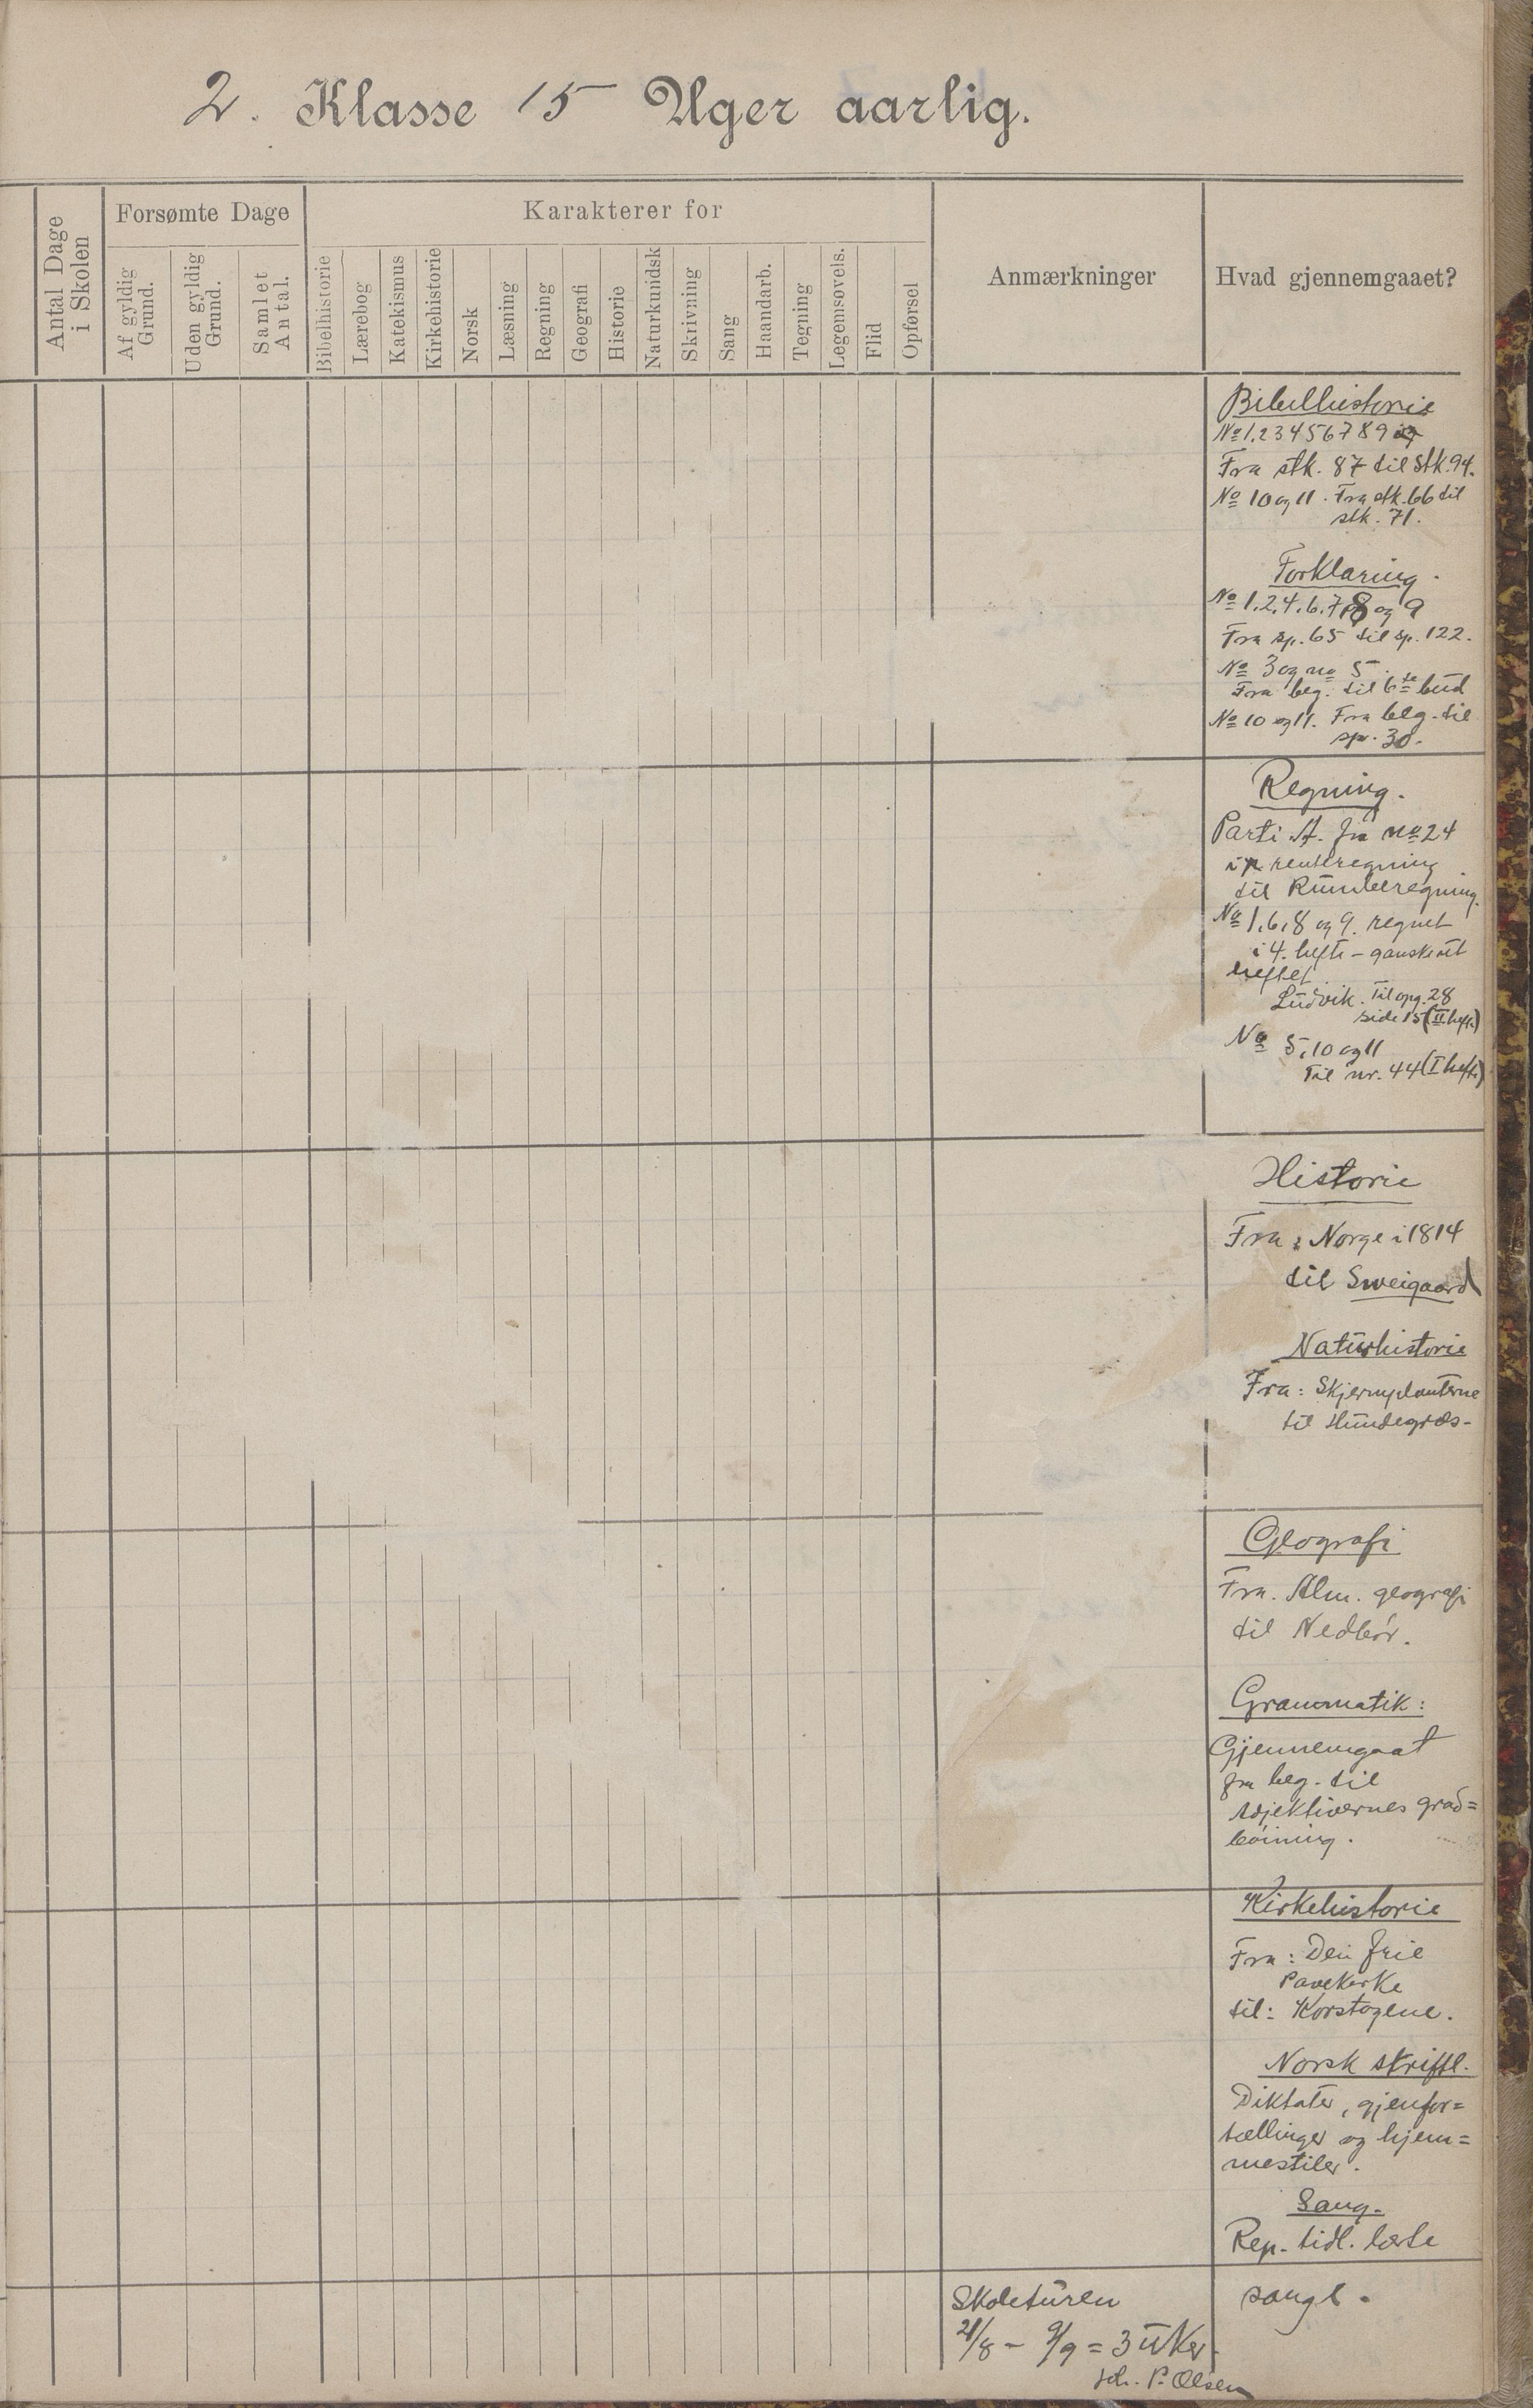 2. Klasse 15 Uger aarlig.
Antal Dage
i Skolen
Forsømte Dage
Af gyldig
Grund.
Uden gyldig
Grund.
Samlet
Antal.
Karakterer for
Bibelhistorie
Lærebog
Katekismus
Kirkehistorie
Norsk
Læsning
Regning
Geografi
Historie
Naturkundsk
Skrivning
Sang
Haandarb.
Tegning
Legemsøvels.
Flid
Opførsel
Anmærkninger
Hvad gjennemgaaet?
Bibelhistorie
No 1. 2 3 4 5 6 7 8 9
Fra stk. 87 til stk. 94.
No 10 og 11. Fra stk. 66 til
stk. 71.
Forklaring.
No 1. 2. 4. 6. 7. 8 og 9
Fra sp. 65 til sp. 122.
No 3 og no 5.
Fra beg. til 6te bud
No 10 og 11. Fra beg. til
sp. 30.
Regning.
Parti A. fra no 24
i renteregning
til Rumberegning.
No 1, 6, 8 og 9. regnet
i 4. hefte – ganske ut
heftet.
Ludvik. Til opg. 28
side 15 (II hefte)
No 5, 10 og 11
Til nr. 44 (I hefte)
Historie
Fra: Norge i 1814
til Sweigaard
Naturhistorie
Fra: Skjermplanterne
til Hundegræs-
Geografi
Fra. Alm. geografi
til Nedbør.
Grammatik:
Gjennemgaat
fra beg. til
adjektivernes grad=
bøining.
Kirkehistorie
Fra: Den frie
Pavekirke
til: Korstogene.
Norsk skriftl.
Diktater, gjenfor=
tællinger og hjem=
mestiler.
Sang.
Rep. tidl. lærte
sange.
Skoleturen
21/8 – 9/9 = 3 uker.
Joh. P. Olsen